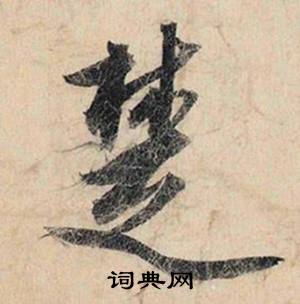 楚
词典网